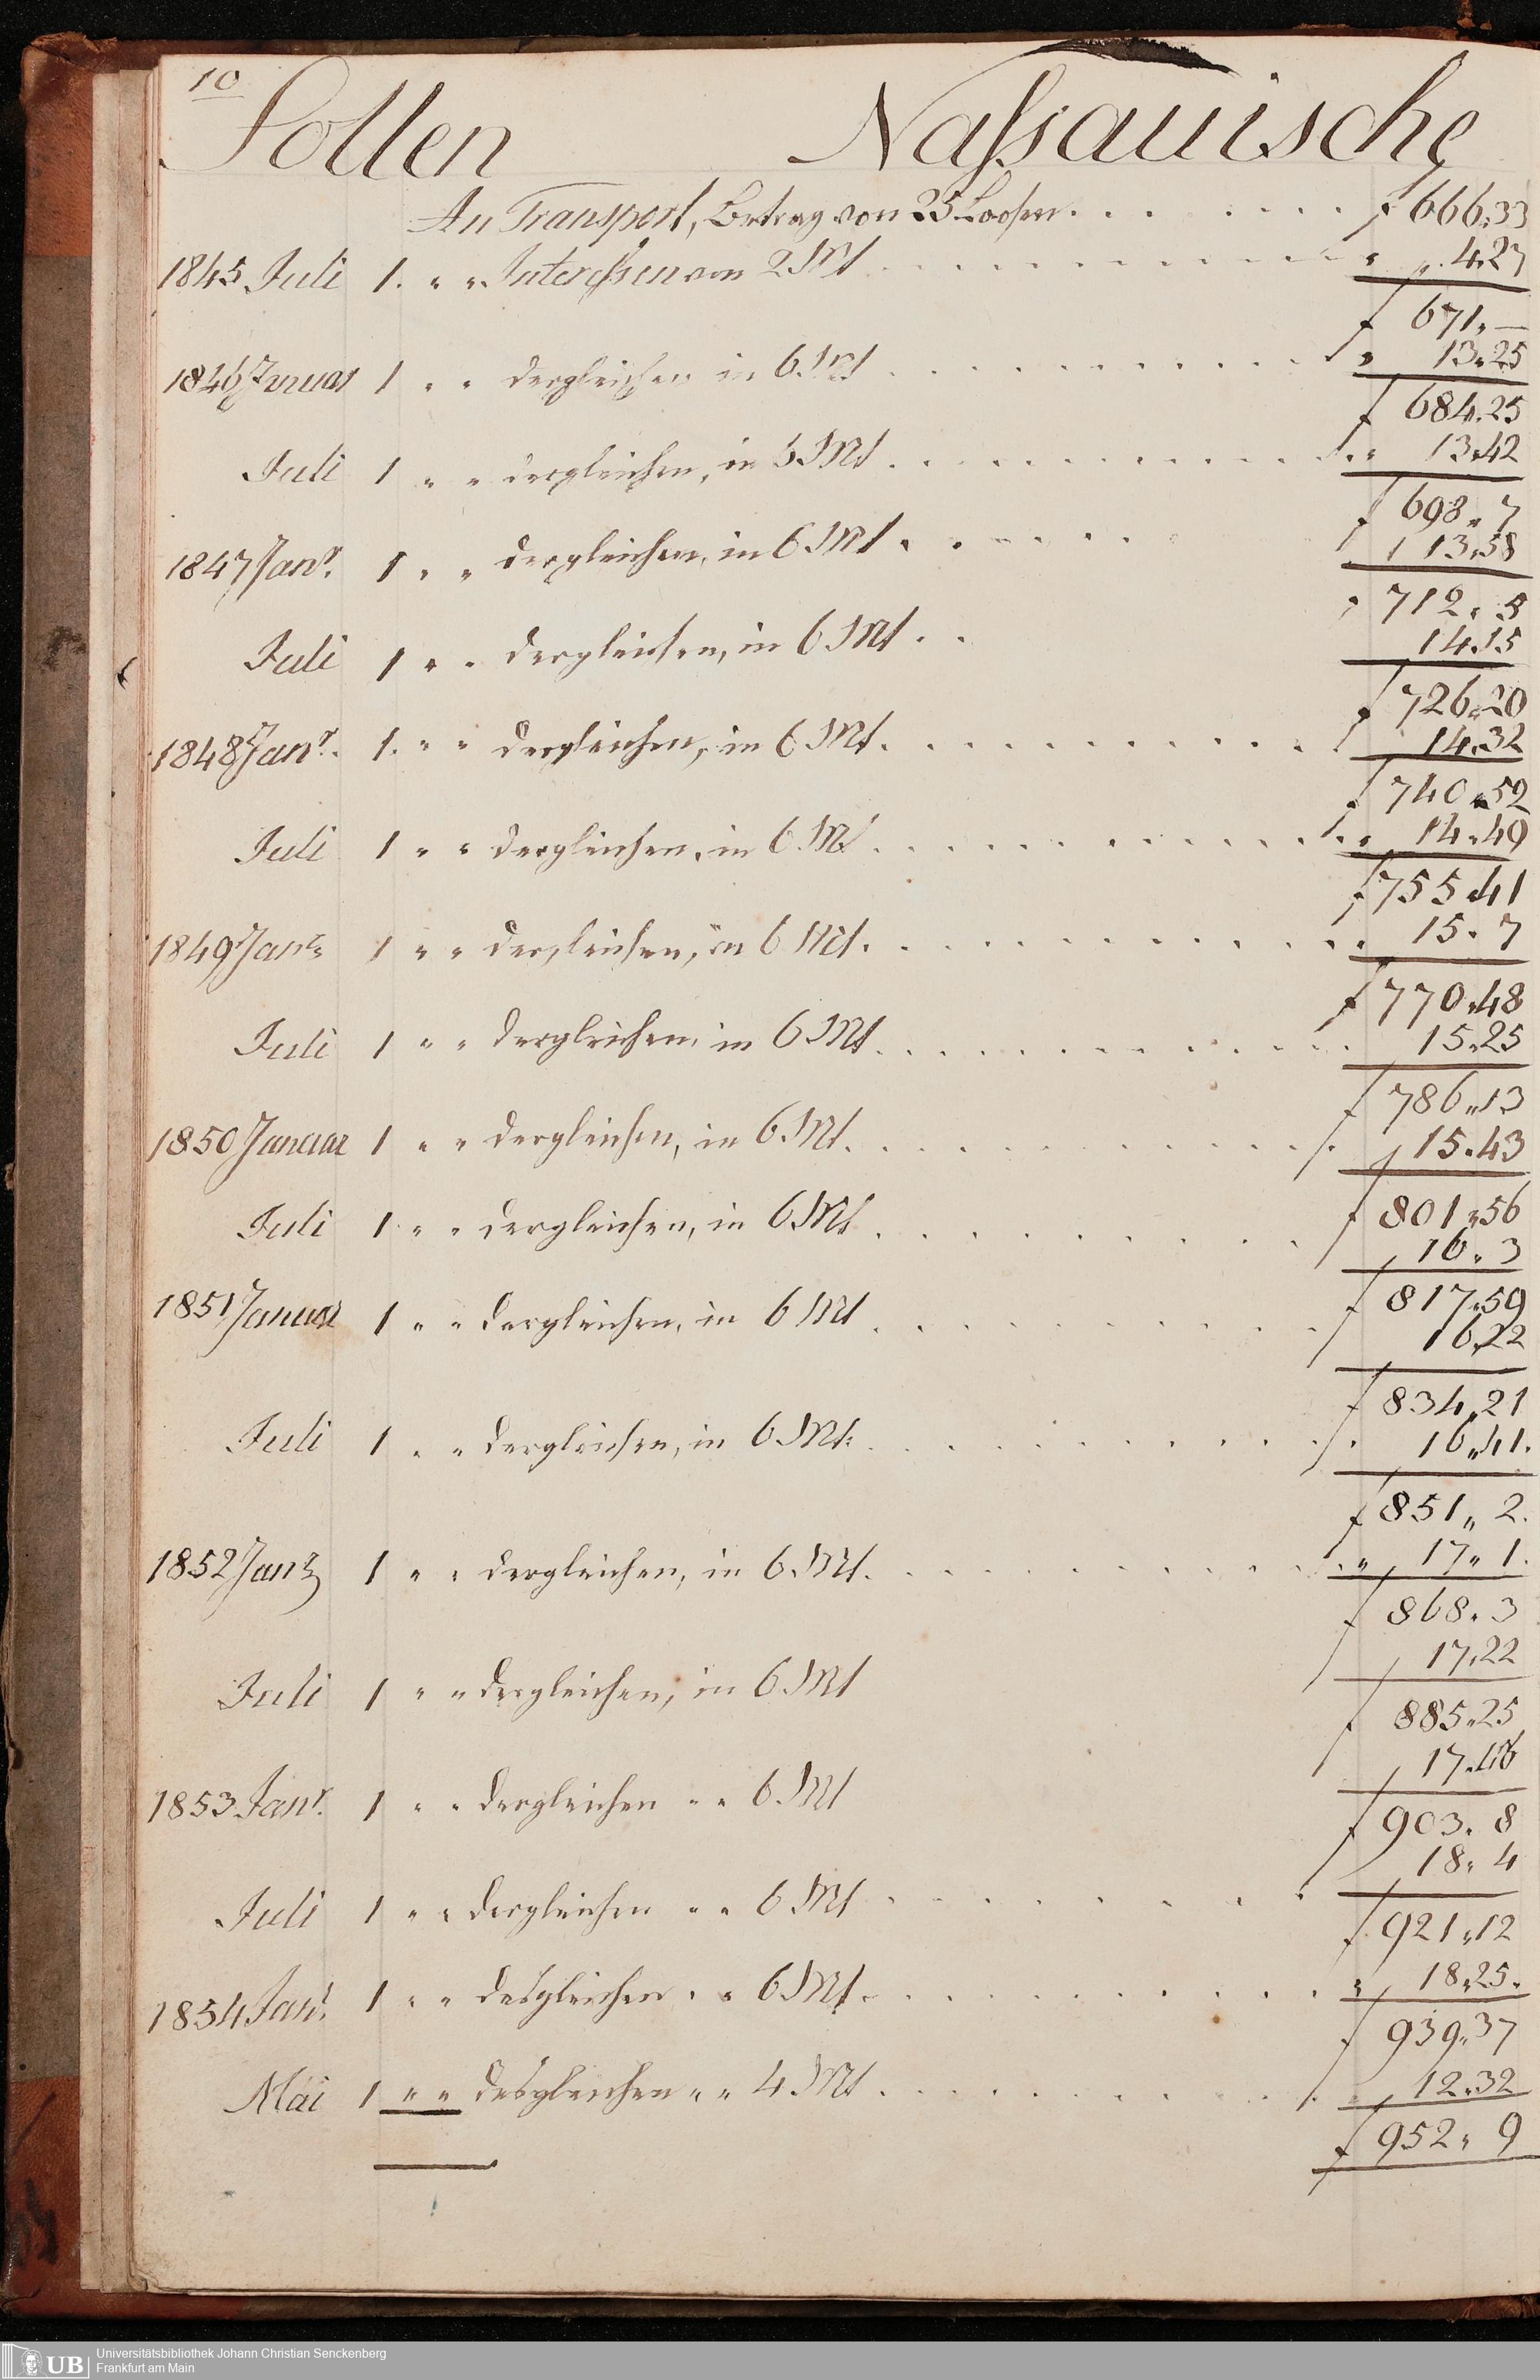 10
Sollen Naſsauische
An Transport, Betrag von 25 Loosen . . . . . . . . f 666„33
1845 Juli 1. „ „ Intereſsen von 2 Mt . . . . . . . . . . „ „ 4„27
f 671„ —
1846 Januar 1 „ „ dergleichen in 6 Mt . . . . . . . . . . „ 13„25
f 684„25
Juli 1 „ „ dergleichen, in 6 Mt . . . . . . . . . . „ 13„42
f 698„ 7
1847 Janr. 1 „ „ dergleichen, in 6 Mt . . . . . . 13„58
„ 712„ 5
Juli 1 „ „ dergleichen, in 6 Mt . . 14„15
f 726„20
1848 Janr. 1. „ „ dergleichen, in 6 Mt . . . . . . . . . . 14„32
f 740„52
Juli 1 „ „ dergleichen, in 6 Mt . . . . . . . . . . „ 14„49
f 755„41
1849 Janr 1 „ „ dergleichen, in 6 Mt . . . . . . . . . . 15„ 7
f 770„48
Juli 1 „ „ dergleichen, in 6 Mt . . . . . . . . . . 15„25
f 786„13
1850 Januar 1 „ „ dergleichen, in 6 Mt . . . . . . . . . . 15„43
f 801„56
Juli 1 „ „ dergleichen, in 6 Mt . . . . . . . . 16„ 3
f 817„59
1851 Januar 1 „ „ dergleichen, in 6 Mt . . . . . . . . . 16„22
f 834„21
Juli 1 „ „ dergleichen, in 6 Mt . . . . . . . . . . 16„41.
f 851„ 2.
1852 Janr 1 „ „ dergleichen, in 6 Mt . . . . . . . . . . „ 17„ 1.
f 868„ 3
Juli 1 „ „ dergleichen, in 6 Mt 17„22
f 885„25
1853 Janr. 1 „ „ dergleichen „ „ 6 Mt 17„43
f 903„ 8
Juli 1 „ „ dergleichen „ „ 6 Mt . . . . . . . . 18„ 4
f 921„12
1854 Janr. 1 „ „ desgleichen „ „ 6 Mt . . . . . . . . . . „ 18„25.
f 939„37
Mai 1 „ „ desgleichen „ „ 4 Mt . . . . . . . . . . „ 12„32
f 952„ 9
UB
Universitätsbibliothek Johann Christian Senckenberg
Frankfurt am Main